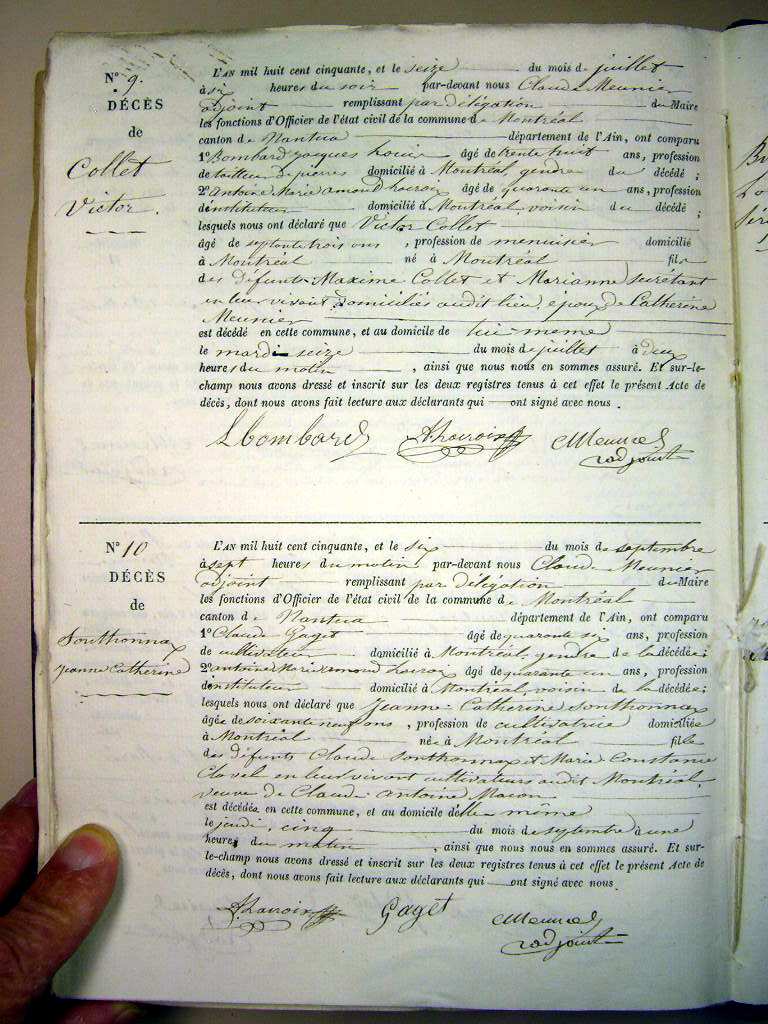 N° 9.
DÉCÈS
de
Collet
Victor.
L'AN mil huit cent cinquante, et le seize du mois de juillet
à six heures du soir par-devant nous Claude Meunier
adjoint remplissant par délégation du Maire
les fonctions d'Officier de l'état civil de la commune de Montréal
canton de Nantua département de l'Ain, ont comparu
1° Bombard Jacques Louis âgé de trente huit ans, profession
de tailleur de pierres domicilié à Montréal, gendre du décédé;
2° Antoine Marie amond Lacroix âgé de quarante un ans, profession
d'instituteur domicilié à Montréal, voisin du décédé;
lesquels nous ont déclaré que Victor Collet
âgé de septante trois ans, profession de menuisier domicilié
à Montréal né à Montréal fils
des défunts Maxime Collet et Marianne
en leur vivant domiciliés audit lieu, epoux de Catherine
Meunier
est décédé en cette commune, et au domicile de lui-meme
le mardi seize du mois de juillet à deux
heures du matin, ainsi que nous nous en sommes assuré. Et sur-le-
champ nous avons dressé et inscrit sur les deux registres tenus à cet effet le présent Acte de
décès, dont nous avons fait lecture aux déclarants qui ont signé avec nous.
LBombard ALacroix CMeunier
adjoint
N° 10
DÉCÈS
de
Sonthonnax
Jeanne Catherine
L'AN mil huit cent cinquante, et le six du mois de septembre
à sept heures du matin par-devant nous Claude Meunier
adjoint remplissant par délégation du Maire
les fonctions d'Officier de l'état civil de la commune de Montréal
canton de Nantua département de l'Ain, ont comparu
1° Claude Gaget âgé de quarante six ans, profession
de cultivateur domicilié à Montréal, gendre de la décédée;
2° antoine Marie amond Lacroix âgé de quarante un ans, profession
d'instituteur domicilié à Montréal, voisin de la décédée;
lesquels nous ont déclaré que Jeanne Catherine Sonthonnax
âgée de soixante neuf ans, profession de cultivatrice domiciliée
à Montréal née à Montréal fille
des défunts Claude Sonthonnax et Marie Constance
Clavel en leur vivant cultivateurs audit Montréal,
veuve de Claude Antoine Macon
est décédée en cette commune, et au domicile d'elle même
le jeudi, cinq du mois de septembre à une
heure du matin, ainsi que nous nous en sommes assuré. Et sur-
le-champ nous avons dressé et inscrit sur les deux registres tenus à cet effet le présent Acte de
décès, dont nous avons fait lecture aux déclarants qui ont signé avec nous.
ALacroix Gaget CMeunier
adjoint